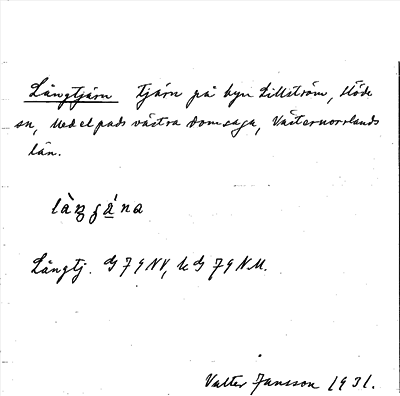 Långtjärn tjärn på byn Lillström, Stöde
sn, Medelpads västra domsaga, Västernorrlands
län.
Långtj. G 79 NV, k G 79 NM.
Valter Jansson 1931.